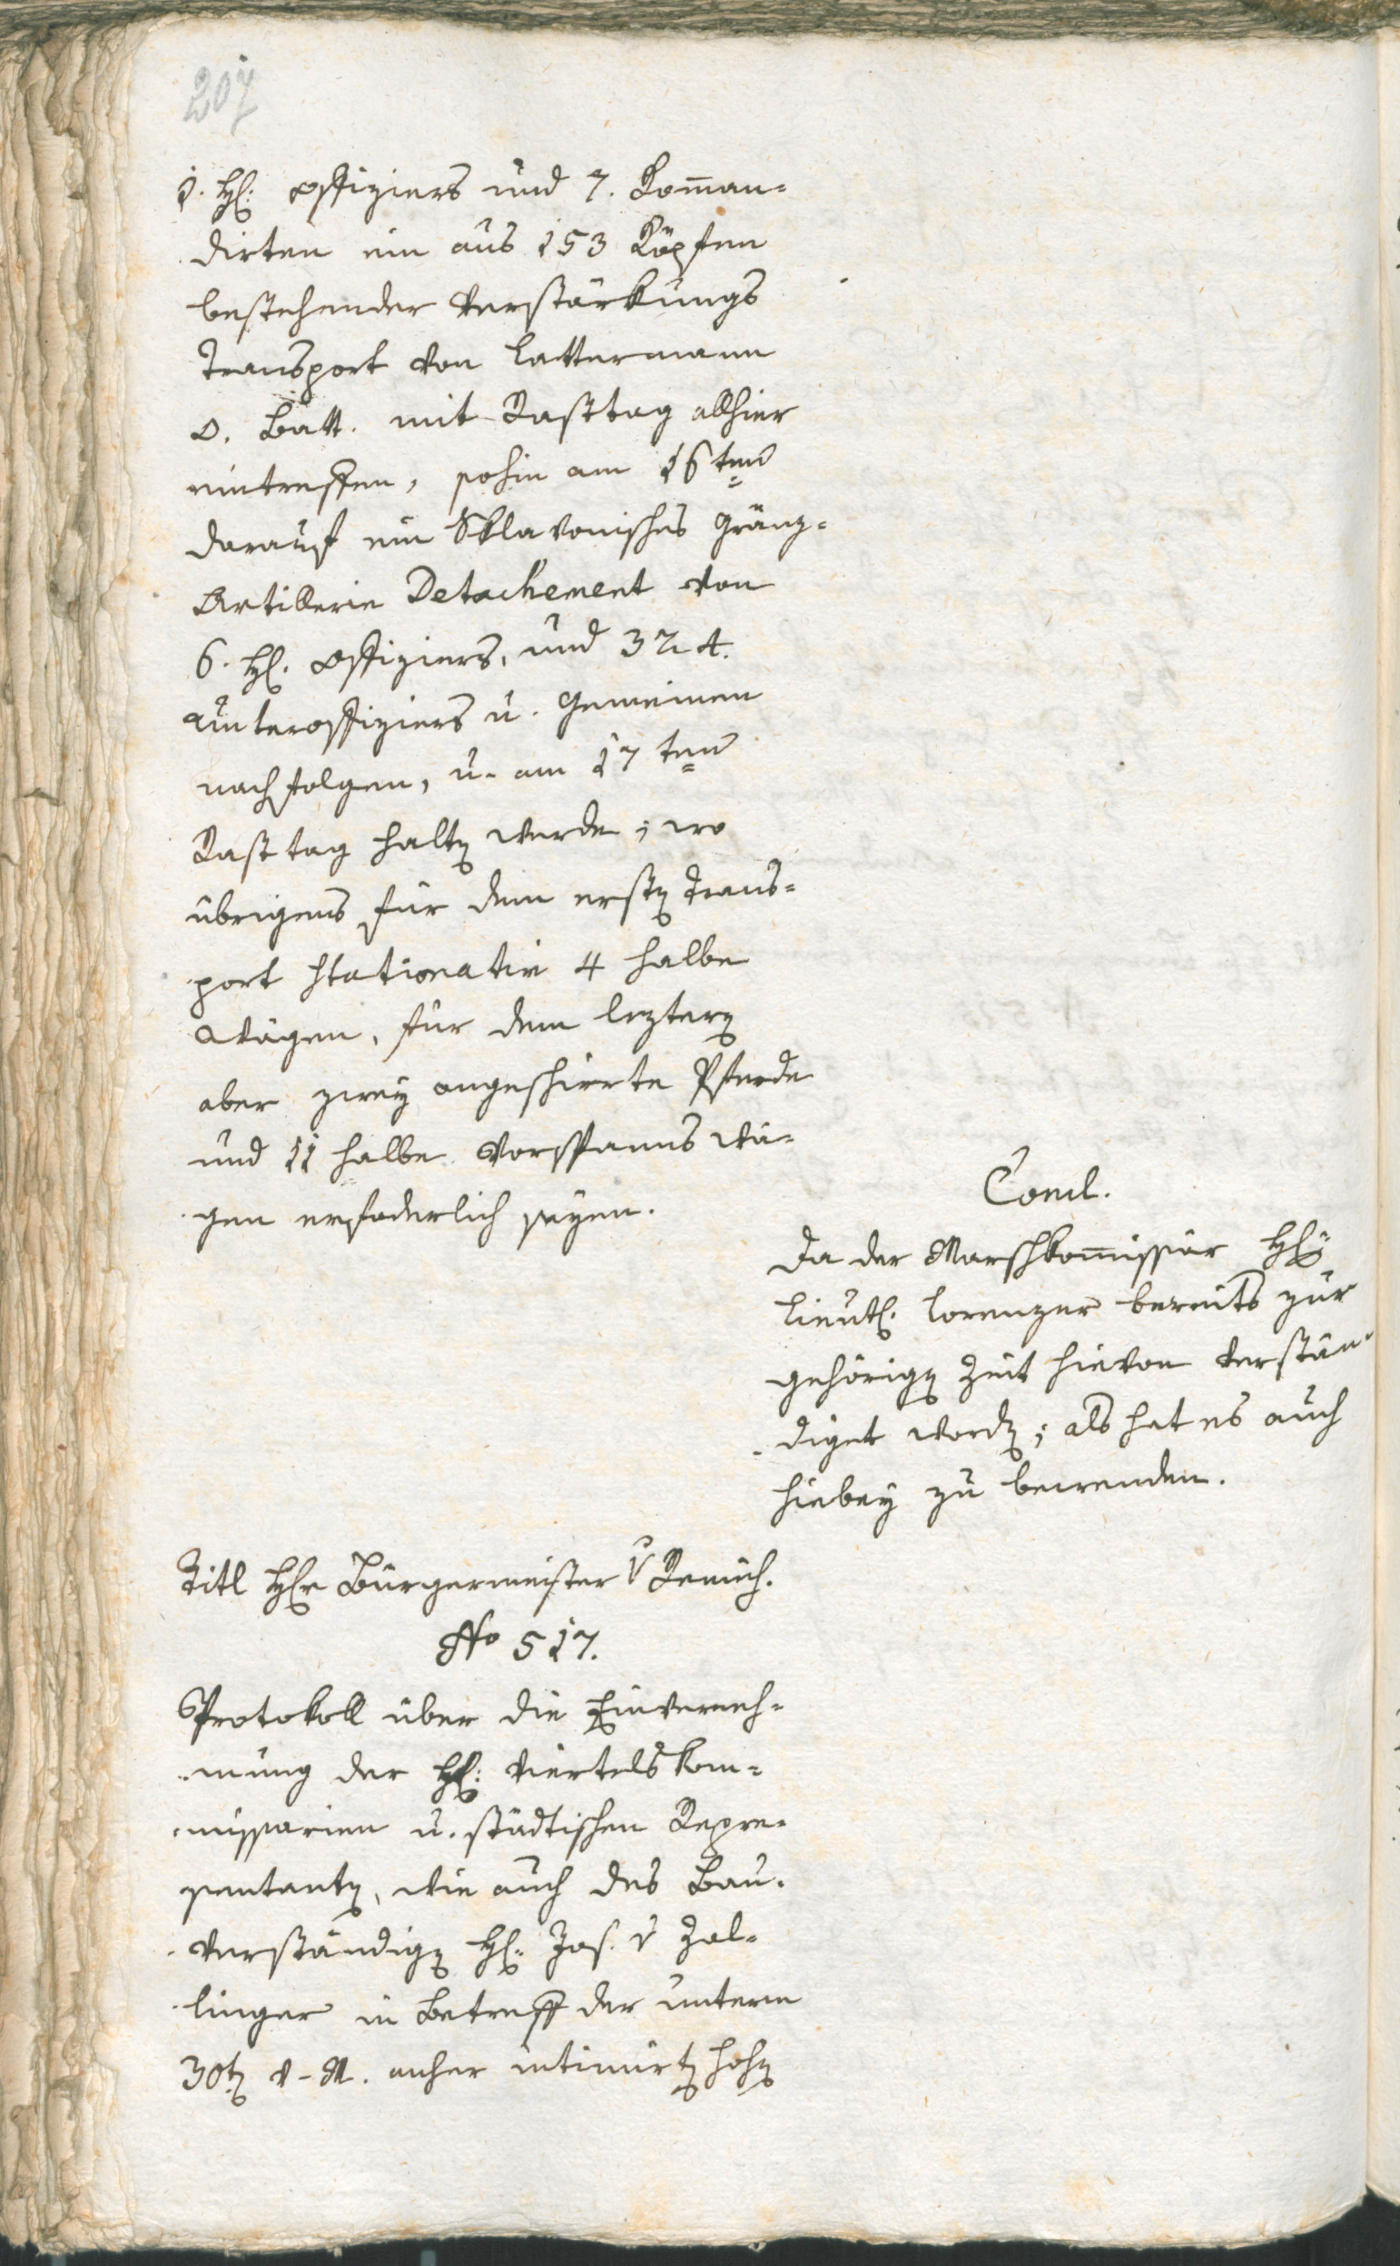 207
1. H: Offiziers und 7. Komman-
dirten ein aus 153 Köpfen
bestehender Verstärkungs
Transport von Lattermann
O. Batt. mit Rasttag allhier
eintreffen, sohin am 16ten
darauf ein Sklavonisches Gränz-
Artillerie Detachement von
6. H. Offiziers, und 324.
Unteroffiziers u. Gemeinen
nachfolgen, u. am 17ten
Rasttag halten werde; wo
übrigens für dem ersten Trans-
port stationatim 4 halbe
Wägen, für dem leztern
aber zwey angeschirrte Pferde
und 11 halbe Vorspanns Wä-
gen erfoderlich seyen.
Concl.
Da der Marschkommissär H:
Lieut. Lorenzer bereits zur
gehörigen Zeit hievon verstän-
diget worden; als hat es auch
hiebey zu bewenden.
Titl Herr Bürgermeister v Remich.
No 517.
Protokoll über die Einverneh-
mung der H: Viertelskom-
missarien u. städtischen Reprae-
sentanten, wie auch des Bau-
verständigen H: Jos. v Zal-
linger in Betreff der unterm
30ten v. M. anher intimirten hohen